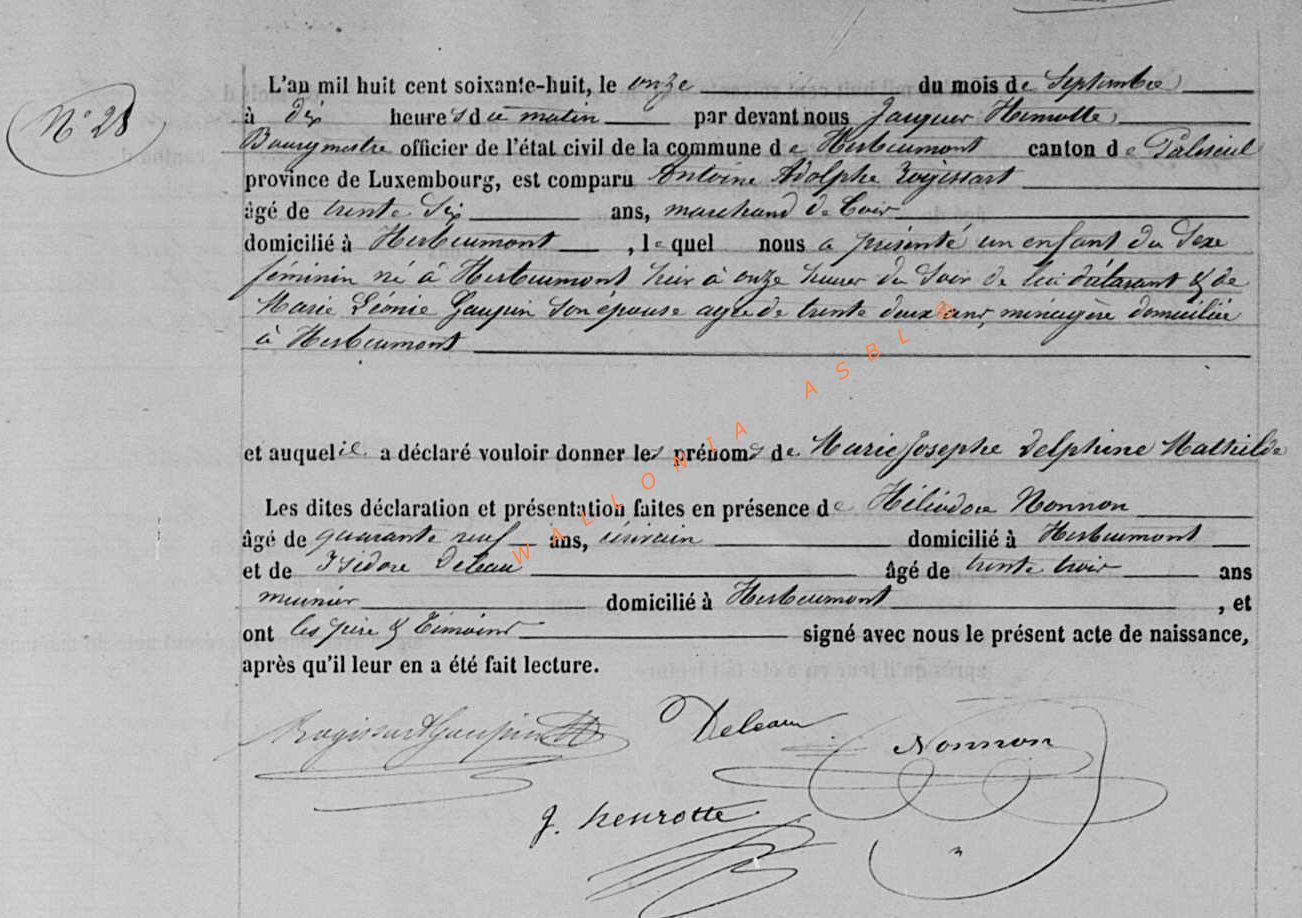 N° 28
L'an mil huit cent soixante-huit, le onze du mois de Septembre
à dix heures du matin par devant nous Jacques Henrotte
Bourgmestre officier de l'état civil de la commune de Herbeumont canton de Paliseul
province de Luxembourg, est comparu Antoine Adolphe Rogissart
âgé de trente Six ans, marchand de Cuir
domicilié à Herbeumont, lequel nous a présenté un enfant du Sexe
féminin né à Herbeumont hier à onze heures du Soir de lui déclarant & de
Marie Léonie Gaupin Son épouse agée de trente deux ans, ménagère domiciliée
à Herbeumont
et auquel il a déclaré vouloir donner les prénoms de Marie Josephe Delphine Mathilde
Les dites déclaration et présentation faites en présence de Héliodore Nonnon
âgé de quarante neuf ans, écrivain domicilié à Herbeumont
et de Isidore Deleau âgé de trente trois ans
meunier domicilié à Herbeumont, et
ont les père & témoins signé avec nous le présent acte de naissance,
après qu'il leur en a été fait lecture.
Rogissart Gaupin Deleau Nonnon
J. henrotte
WALLONIA ASBL ®